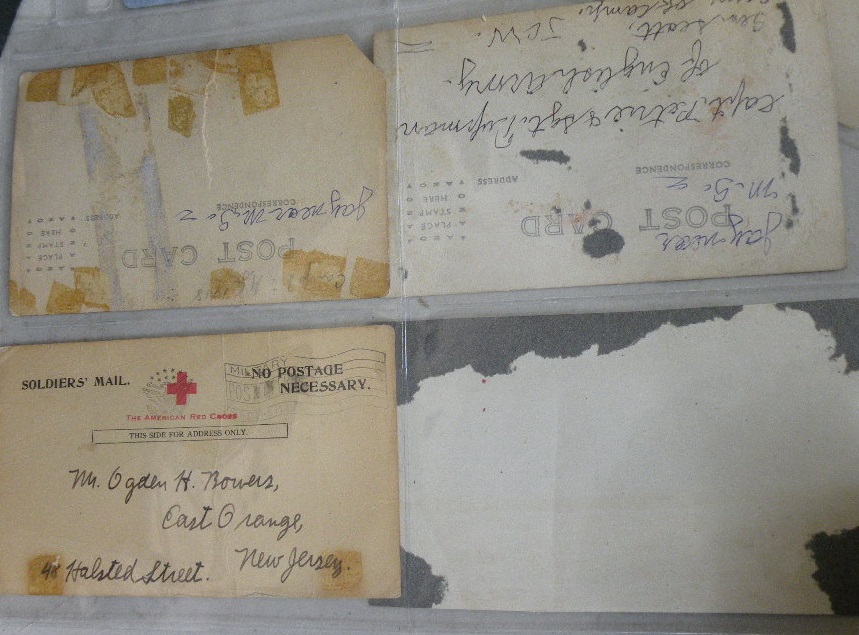 POST CARD
CORRESPONDENCE
ADDRESS
PLACE
STAMP
HERE
POST CARD
CORRESPONDENCE
ADDRESS
PLACE
STAMP
HERE
Capt. Petrie & Sgt.
of English Army.
Gen. Scott,
Camp.
SOLDIERS' MAIL.
THE AMERICAN RED CROSS
MILITARY
POST
NO POSTAGE
NECESSARY.
THIS SIDE FOR ADDRESS ONLY.
Mr. Ogden H. Bowers,
East Orange,
New Jersey.
48 Halsted Street.